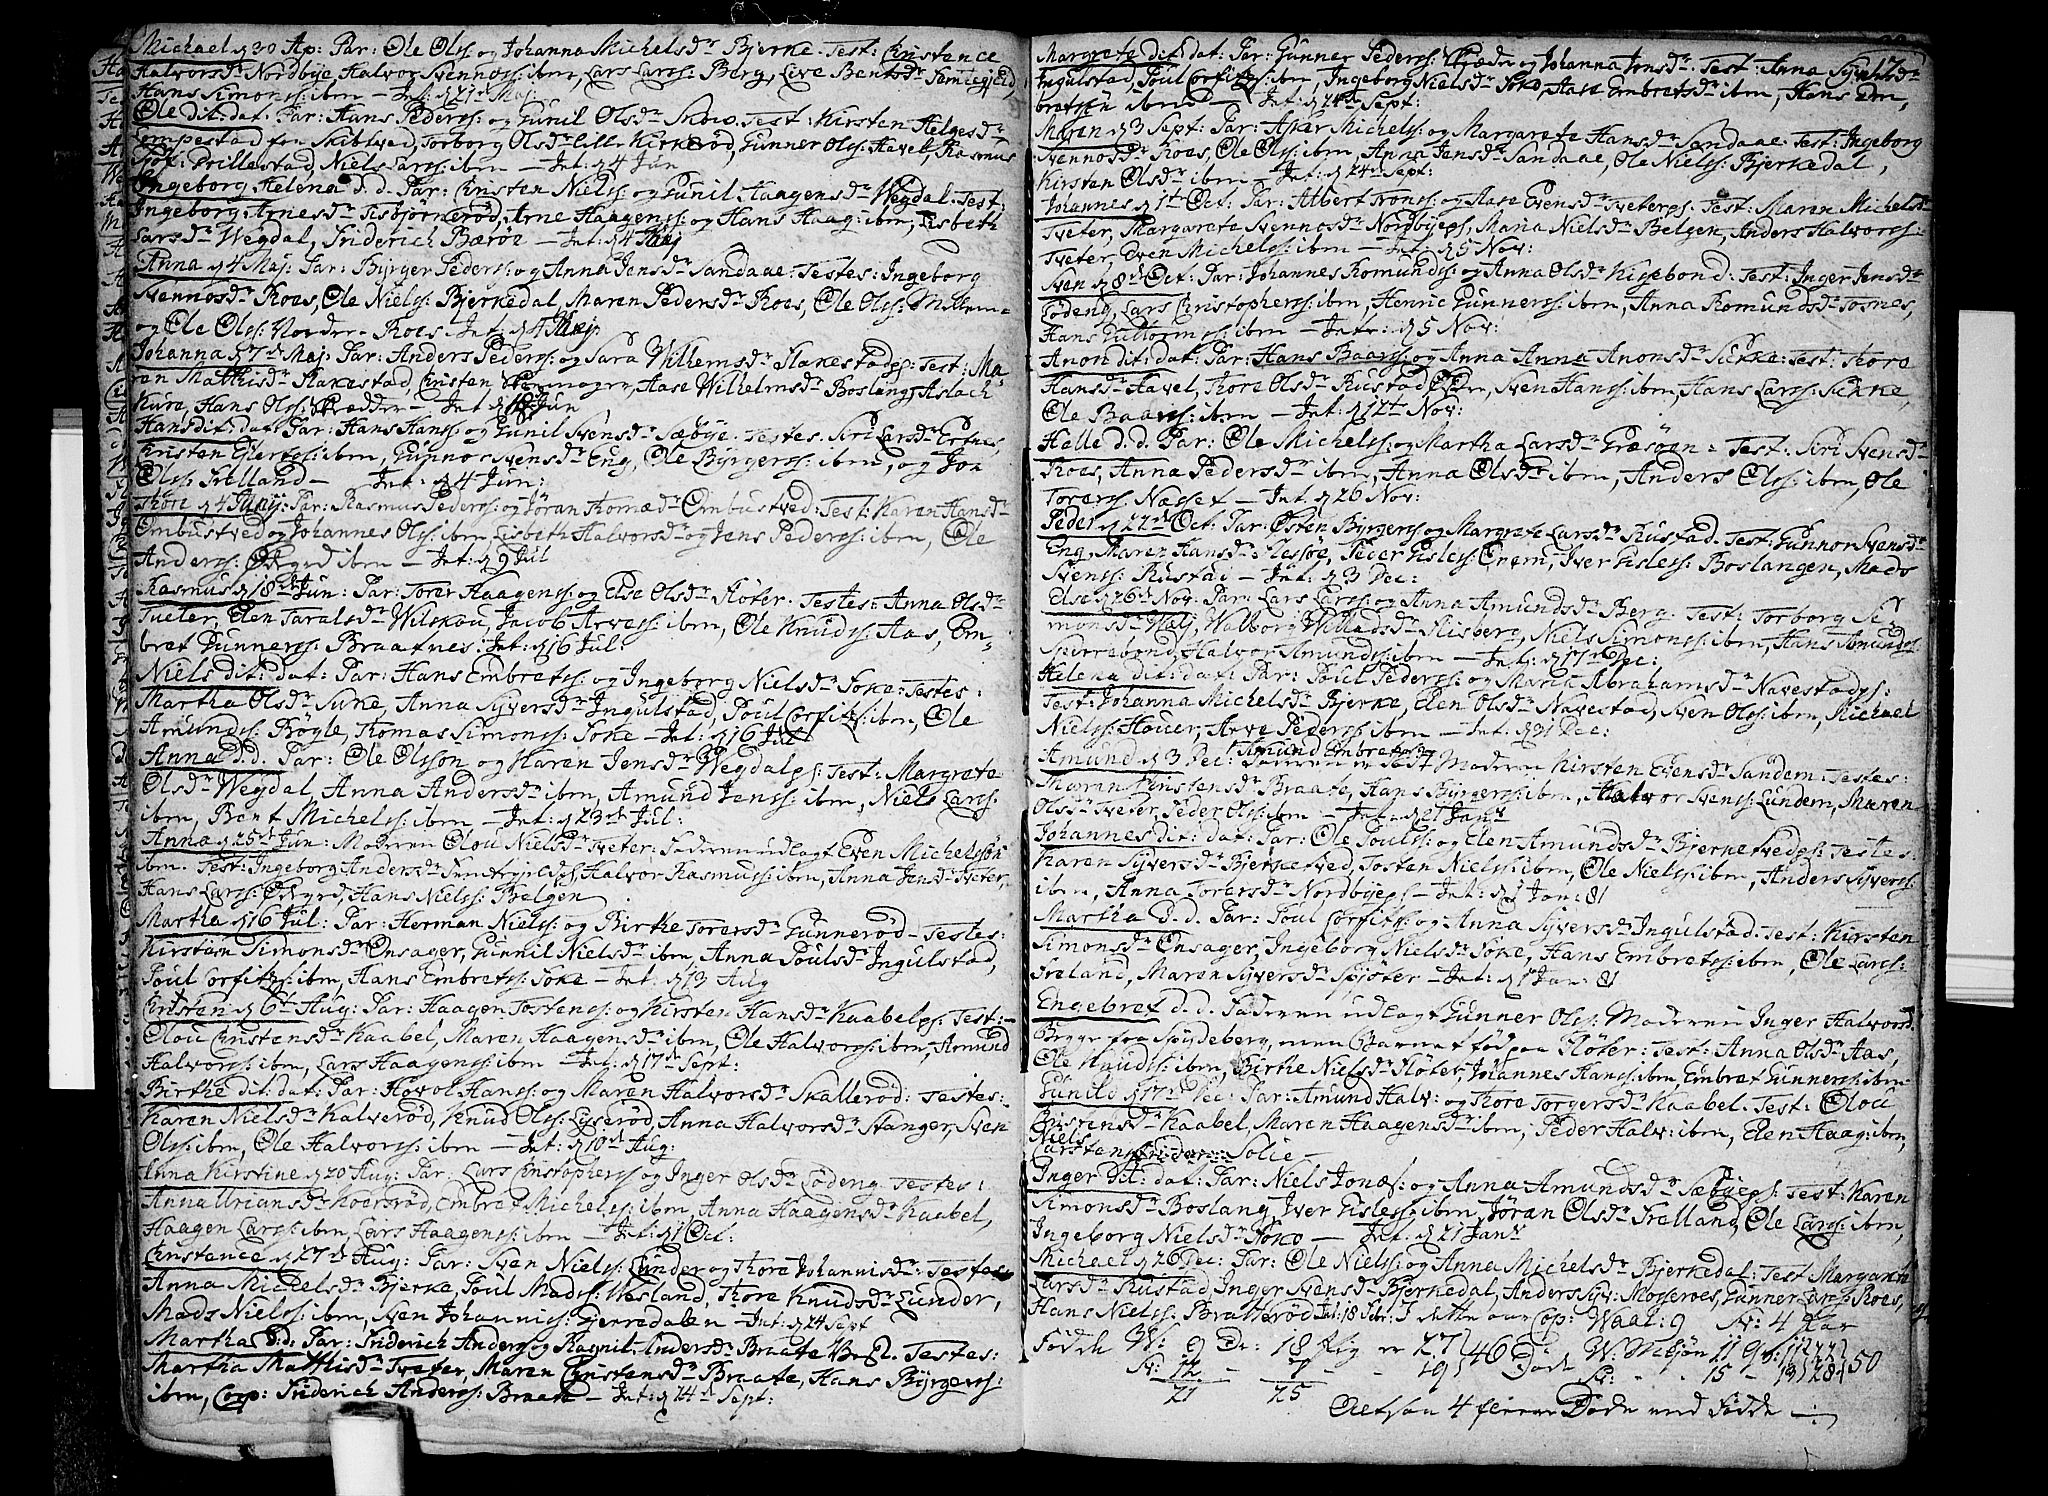 Michael d 30 Ap: Par: Ole Ols: og Johanna Michelsdr Bjerke. Test: Christence
Halvorsdr Nordbÿe, Halvor Svenns: ibm, Lars Lars: Berg, Live Bentsdr
Hans Simons: ibm – Int: d 21 Maj:
Ole dit: dat: Par: Hans Peders: og Gunil Olsdr Skov. Test: Kirsten Helgesdr
Tompestad fra Skibtved, Torborg Olsdr Lille Kirkerød, Gunner Ols: Havel, Rasmus
Grillestad, Niels Lars: ibm – Int: d 4 Jun
Ingeborg Helena d. d. Par: Christen Niels: og Gunil Haagensdr Wegdal. Test:
Ingeborg Arnesdr Tisbjørnerød, Arne Haagens: og Hans Haag: ibm, Lisbeth
Larsdr Wegdal, Friderich Bærøe – Int: d 4 Maj
Anna d 4 Maj: Par: Bÿrger Peders: og Anna Jensdr Sandaae: Testes: Ingeborg
Svennosdr Roes, Ole Niels: Bjerkedal, Maren Pedersdr Roes, Ole Ols: Mellem-
og Ole Ols: Norder-Roes – Int: d 4 Maj
Johanna d 7 Maj: Par: Anders Peders: og Sara Wilhemsdr Slakestad: Test: Ma-
ren Matthisdr Slakestad, Christen, Aase Wilhelmsdr Boslang, Aslach
Kure, Hans Ols: Skrædder – Int: Jun
Hans dit: dat: Par: Hans Hans: og Gunil Svensdr Sæbÿe. Testes: Siri Larsdr
Christen Gierts: ibm, Gunnor Svensdr Eng, Ole Bÿrgers: ibm, og Jon
Ols: Frelland – Int: d 4 Jun:
Thore d 4 Par: Rasmus Peders: og Jøran Thomædr Ombustved: Test: Karen Hansdr
Ombustved og Johannes Ols: ibm, Lisbeth Halvorsdr og Jens Peders: ibm, Ole
Anders: ibm – Int: d 9 Jul
Rasmus d 18 Jun: Par: Torer Haagens: og Else Olsdr Fløter. Testes: Anna Olsdr
Tueter, Elen Taralsdr Wilskou, Jacob Arves: ibm, Ole Knuds: Aas, Em-
bret Gunners: Braatnes: Int: d 16 Jul:
Niels dit: dat: Par: Hans Embrets: og Ingeborg Nielsdr Soke: Testes:
Martha Olsdr Sune, Anna Sÿversdr Ingulstad, Poul Corfitz: ibm, Ole
Amunds: Bøgle, Thomas Simons: Soke – Int: d 16 Jul
Anna d. d. Par: Ole Olsson og Karen Jensdr Wegdal: Test: Margrete
Olsdr Wegdal, Anna Andersdr ibm, Amund Jens: ibm, Niels Lars:
ibm, Bent Michels: ibm – Int: d 23 Jul:
Anna d 25 Jun: Moderen Olou Nielsdr Tveter: Faderen udlagt Even Michelssøn
ibm. Test: Ingeborg Andersdr Halvor Rasmus: ibm, Anna Jensdr Tveter,
Hans Lars:, Hans Niels: Belgen
Martha d 16 Jul: Par: Herman Niels: og Birthe Torersdr Gunnerød – Testes:
Kirsten Simonsdr Onsager, Gunnil Nielsdr ibm, Anna Poulsdr Ingulstad,
Poul Corfitz: ibm, Hans Embrets: Soke – Int: d 13 Aug
Christen d 6 Aug: Par: Haagen Tostens: og Kirsten Hansdr Kaabel: Test:
Olou Christensdr Kaabel, Maren Haagensdr ibm, Ole Halvors: ibm, Amund
Halvors: ibm, Lars Haagens: ibm – Int: d 17 Sept:
Birthe dit: dat: Par: Hovol Hans: og Maren Halvorsdr Skallerød: Testes:
Karen Nielsdr Kalverød, Knud Ols: Lÿserød, Anna Halvorsdr Stanger, Sven
Ols: ibm, Ole Halvors: ibm – Int: d 10 Aug:
Anna Kirstine d 20 Aug: Par: Lars Christophers: og Inger Olsdr Lodeng. Testes:
Anna Uriansdr Koersrød, Embret Michels: ibm, Anna Haagensdr Kaabel,
Haagen Lars: ibm, Lars Haagens: ibm – Int: d 1 Oct:
Christence d 27 Aug: Par: Sven Niels: Lunder og Thore Johannisdr: Testes
Anna Michelsdr Bjerke, Poul Mads: Wesland, Thore Knudsdr Lunder,
Mads Niels: ibm, Sven Johannis: Gjerredalen – Int: d 24 Sept
Martha d. d: Par: Friderich Anders: og Ragnil Andersdr Braate. Testes:
Martha Matthisdr Tveter, Maren Christensdr Braate, Hans Bÿrgers:
ibm, Corp: Friderich Anders: Braate – Int: d 24 Sept:
Margrete dit: dat: Par: Gunner Peders: og Johanna Jensdr Test: Anna
Ingulstad, Poul Corfitz: ibm, Ingeborg Nielsdr Soke, Aase Embretsdr ibm, Hans Em-
bretsøn ibmd – Int: d 24 Sept:
Maren d 3 Sept: Par: Asker Michels: og Margarete Hansdr Sandaae: Test: Ingeborg
Svennosdr Roes, Ole Ols: ibm, Anna Jensdr Sandaae, Ole Niels: Bjerkedal,
Kirsten Olsdr ibm – Int: d 24 Sept:
Johannes d 1 Oct: Par: Albert Trons: og Aase Evensdr Tveter: Test: Maren Michelsdr
Tveter, Margarete Svennosdr Nordbÿe, Maria Nielsdr Belgen, Anders Halvors:
Tveter, Even Michels: ibm – Int: d 5 Nov:
Sven d 8 Oct: Par: Johannes Romunds: og Anna Olsdr Kisebond: Test: Inger Jensdr
Lodeng, Lars Christophers: ibm, Henric Gunners: ibm, Anna Romundsdr Tosnes,
Hans Guttorms: ibm – Int: d 5 Nov:
Anon dit: dat: Par: Hans Baars: og Anna Anna Anonsdr Sikke: Test: Thore
Hansdr Havel, Thore Olsdr Rustad, Sven Hans: ibm, Hans Lars: Sikke,
Ole Baars: ibm – Int: d 12 Nov:
Halle d. d. Par: Ole Michels: og Martha Larsdr Græsøen = Test: Siri Svensdr
Roes, Anna Pedersdr ibm, Anna Olsdr ibm, Anders Ols: ibm, Ole
Torers: Næsset – Int: d 26 Nov:
Peder d 22 Oct: Par: Østen Bÿrgers: og Margrete Larsdr Rustad. Test: Gunnor Svensdr
Eng, Maren Hansdr Flesjøe, Peder Gisles: Erem, Iver Gisles: Boslangen, Mads
Svens: Rustad – Int: d 3 Dec:
Else d 26 Nov: Par: Lars Lars: og Anna Amundsdr Berg. Test: Torborg Si-
monsdr Walborg Willadsdr Flisberg, Niels Simons: ibm, Hans Amunds:
Spærrebond, Halvor Amunds: ibm – Int: d 17 Dec:
Helena dit: dat: Par: Poul Peders: og Maria Abrahamsdr Navestad:
Test: Johanna Michelsdr Bjerke, Elen Olsdr Navestad, Sven Ols: ibm, Michael
Niels: Houer, Arve Peders: ibm – Int: d 31 Dec:
Amund d 3 Dec: Faderen er død Amund Embrets: Moderen Kirsten Evensdr Sandem: Testes:
Maren Christensdr Braate, Hans Bÿrgers: ibm, Halvor Svens: Lundem, Maren
Olsdr Tveter, Peder Ols: ibm – Int: d 21 Janr
Johannes dit: dat: Par: Ole Pouls: og Elen Amundsdr Bjerketved: Testes:
Karen Sÿversdr Bjerketved, Tosten Niels: ibm, Ole Niels: ibm, Anders Sÿvers:
ibm, Anna Torersdr Nordbÿe – Int: d 1 Jan: 81
Martha d. d. Par: Poul Corfitz: og Anna Sÿversdr Ingulstad. Test: Kirsten
Simonsdr Onsager, Ingeborg Nielsdr Soke, Hans Embrets: ibm, Ole Lars:
Freland, Maren Sÿversdr Spjøter – Int: d 1 Jan: 81
Engebret d. d. Faderen udlagt Gunner Ols: Moderen Inger Halvorsd.
Bÿgge fra Spÿdeberg, men Barnet fød paa Fløter: Test: Anna Olsdr Aas,
Ole Knuds: ibm, Birthe Nielsdr Fløter, Johannes Hans: ibm, Embret Gunners: ibm
Gunild d 17 Dec: Par: Amund Halv: og Thore Torgersdr Kaabel. Test: Olou
Christensdr Kaabel, Maren Haagensdr ibm, Peder Halv: ibm, Elen Haag: ibm,
Niels
Carsten Friders: Solie –
Inger dit: dat: Par: Niels Jonæs: og Anna Amundsdr Sæbÿe: Test: Karen
Simonsdr Boslang, Iver Gisles: ibm, Jøran Olsdr Frelland, Ole Lars: ibm,
Ingeborg Nielsdr Soko – Int: d 21 Janr
Michael d 26 Dec: Par: Ole Niels: og Anna Michelsdr Bjerkedal: Test Margarete
Larsdr Rustad, Inger Svensdr Bjerkedal, Anders Sÿv: Moseroes, Gunner Lars: Roes,
Hans Niels: Bratterød Int: 18 Febr: I dette aar Cop: Waal: 9 Sp: 4 Par
Fødde W: 9 Dr: 18 Pig er 27 46 Døde W. Mkjøn 11 Qv: 11 22 50
Sp: 12 – 7 – 19 Sp: – 15 – 13 28
21 25
Altsaa 4 fleere Døde end Fødde –